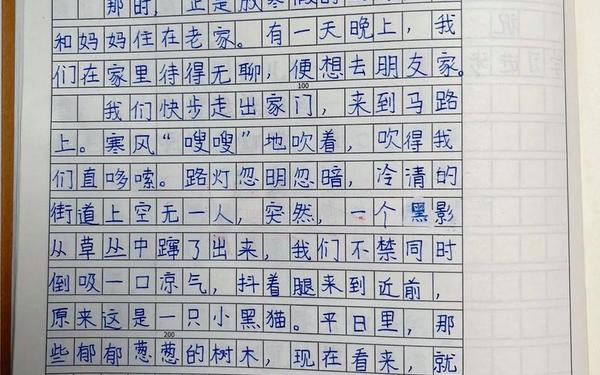 那时，正是放寒假的
和妈妈住在老家。有一天晚上，我
们在家里待得无聊，便想去朋友家。
100
我们快步走出家门，来到马路
上。寒风“嗖嗖”地吹着，吹得我
们直哆嗦。路灯忽明忽暗，冷清的
街道上空无一人，突然，一个黑影
从草丛中蹿了出来，我们不禁同时
倒吸一口凉气，抖着腿来到近前，
原来这是一只小黑猫。平日里，那
200
些郁郁葱葱的树木，现在看来，就